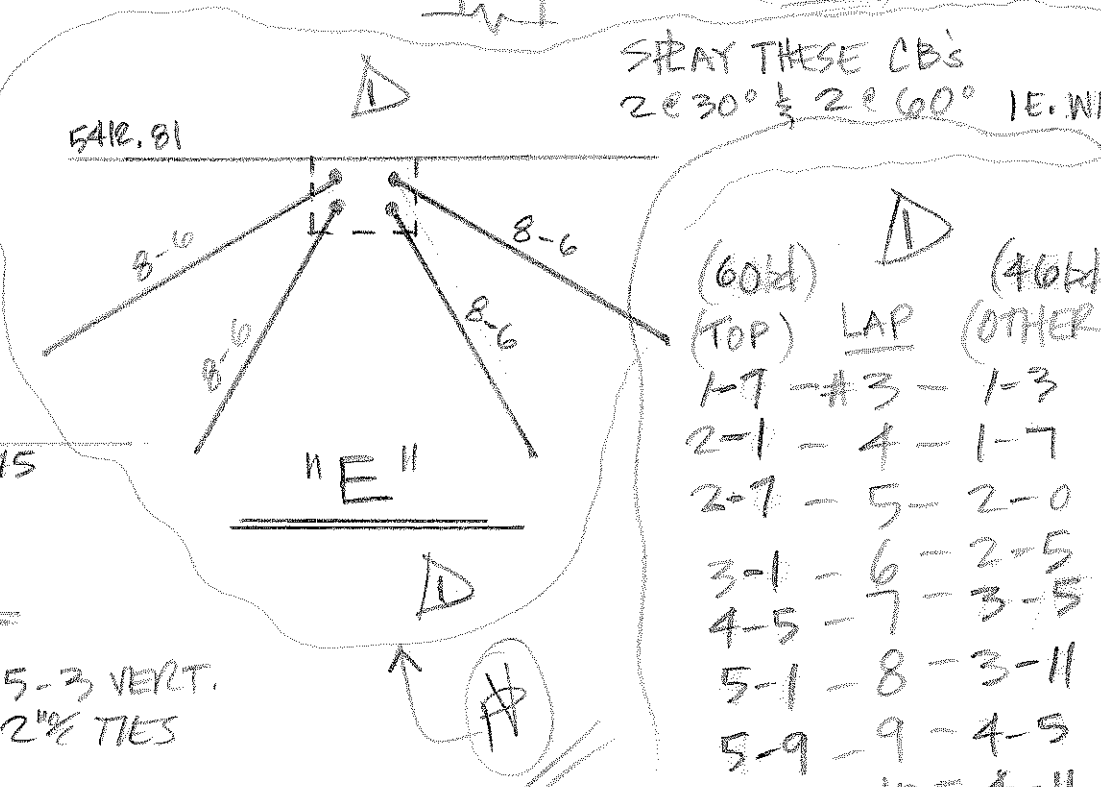 SPLAY THESE CB's
2@30° & 2@60° IE. WI
1
5412.81
8-6
8-6
8-6
8-6
"E"
1
15
5-3 VERT.
2"O/C TIES
N
1
(60bd) (46bd
(TOP) LAP (OTHER
1-7 - #3 - 1-3
2-1 - 4 - 1-7
2-7 - 5 - 2-0
3-1 - 6 - 2-5
4-5 - 7 - 3-5
5-1 - 8 - 3-11
5-9 - 9 - 4-5